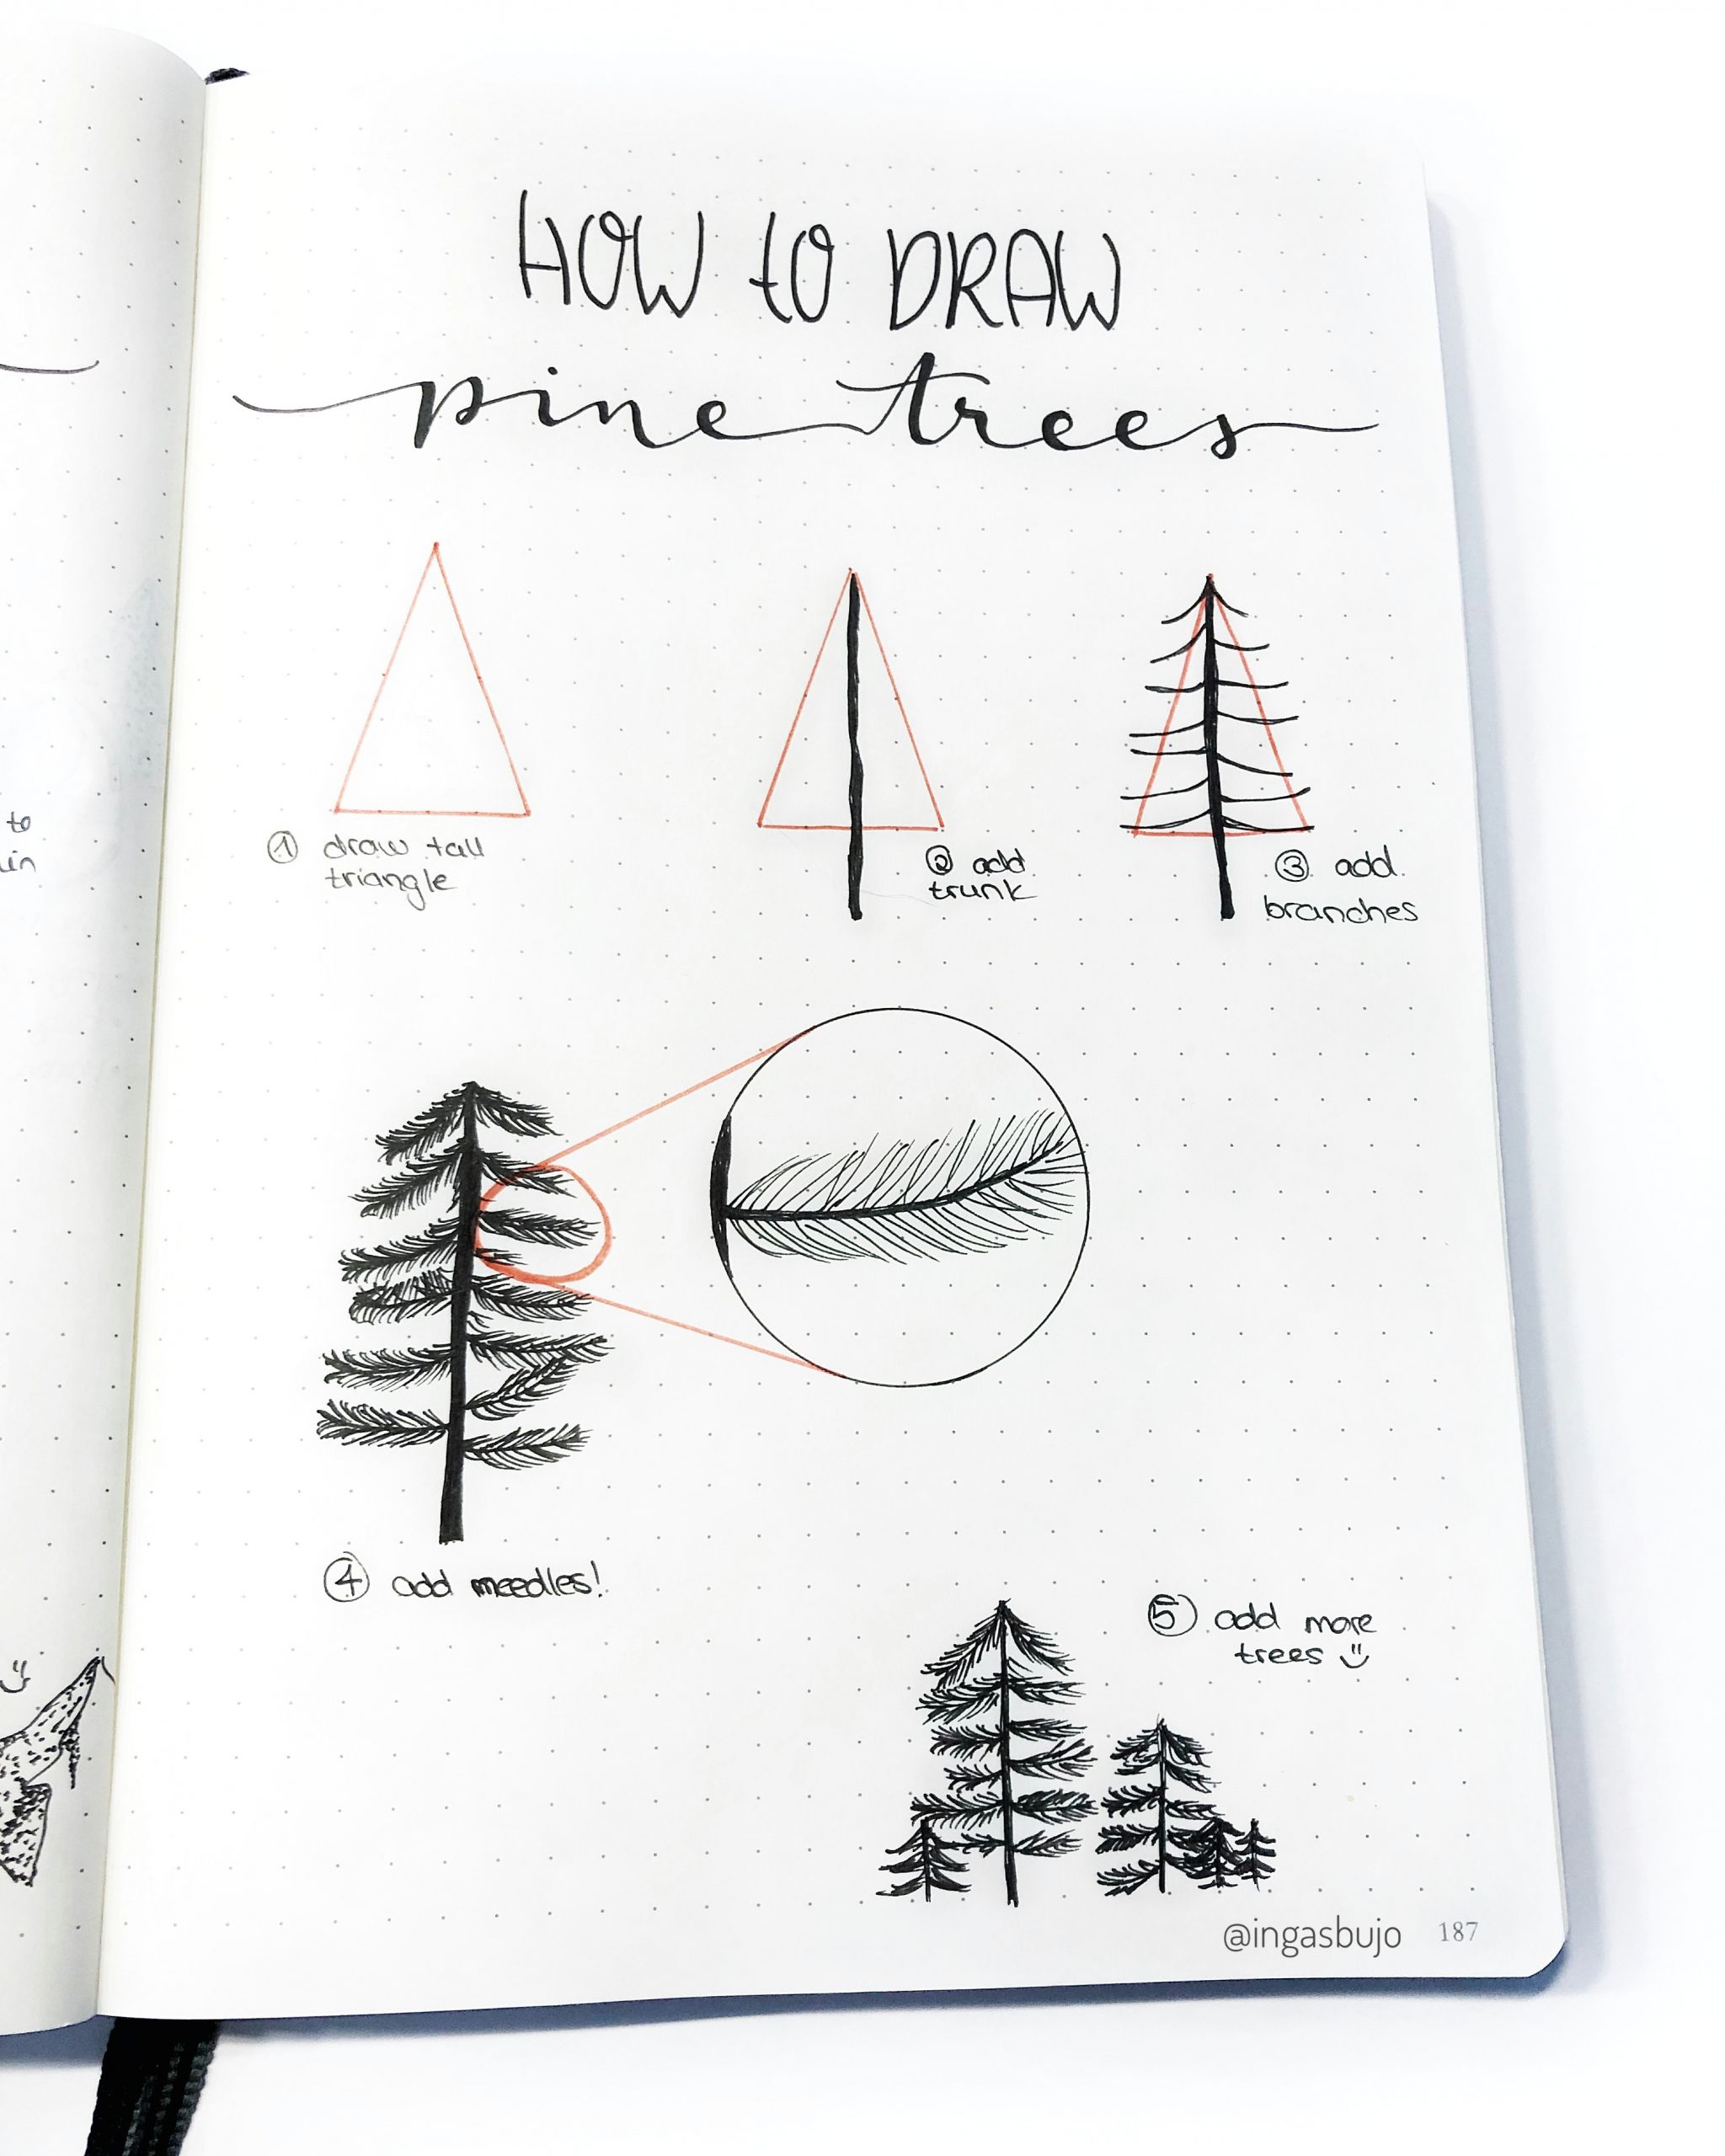 HOW to DRAW
pine trees
① draw tall
triangle
② add
trunk
③ add
branches
④ add needles!
⑤ add more
trees ü
to
in
@ingasbujo 187